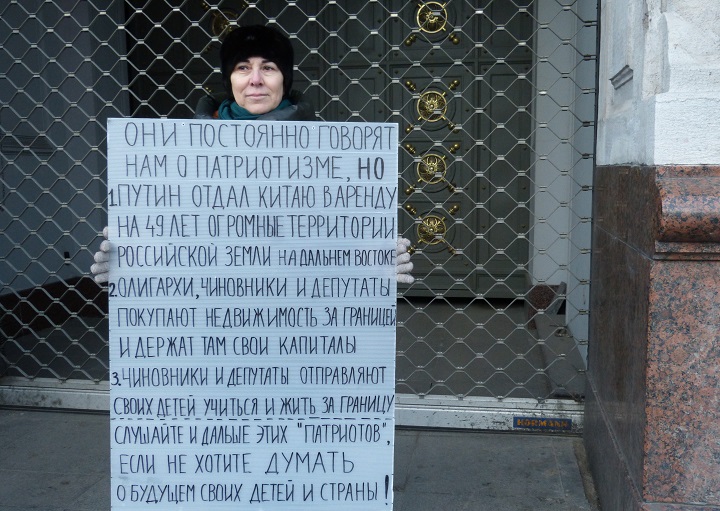 ОНИ ПОСТОЯННО ГОВОРЯТ
НАМ О ПАТРИОТИЗМЕ, НО
1. ПУТИН ОТДАЛ КИТАЮ В АРЕНДУ
НА 49 ЛЕТ ОГРОМНЫЕ ТЕРРИТОРИИ
РОССИЙСКОЙ ЗЕМЛИ НА ДАЛЬНЕМ ВОСТОКЕ
2. ОЛИГАРХИ, ЧИНОВНИКИ И ДЕПУТАТЫ
ПОКУПАЮТ НЕДВИЖИМОСТЬ ЗА ГРАНИЦЕЙ
И ДЕРЖАТ ТАМ СВОИ КАПИТАЛЫ
3. ЧИНОВНИКИ И ДЕПУТАТЫ ОТПРАВЛЯЮТ
СВОИХ ДЕТЕЙ УЧИТЬСЯ И ЖИТЬ ЗА ГРАНИЦУ
СЛУШАЙТЕ И ДАЛЬШЕ ЭТИХ "ПАТРИОТОВ",
ЕСЛИ НЕ ХОТИТЕ ДУМАТЬ
О БУДУЩЕМ СВОИХ ДЕТЕЙ И СТРАНЫ!